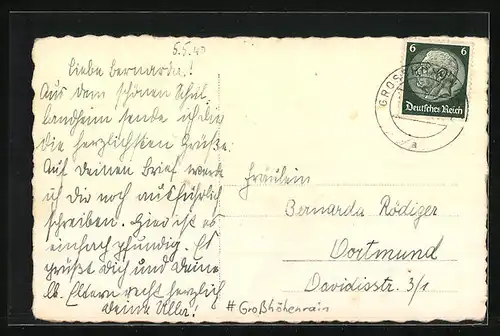 5.5.40
Liebe Bernarda!
Aus dem schönen Schul
landheim sende ich dir
die herzlichsten Grüße.
Auf deinen Brief werde
ich dir noch ausführlich
schreiben. Hier ist es
einfach pfundig. Es
grüßt dich und deine
lb. Eltern recht herzlich
deine Ulla!
6 6
Deutsches Reich
a
Fräulein
Bernarda Rödiger
Dortmund
Davidisstr. 3/1
#Großhöhenrain